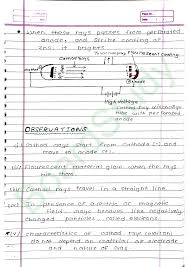 When these rays passes from perforated
anode, and strike coating of
zns, it brights.
Cathode Rays
Fluorescent Coating
Cathode
Anode
High Voltage
Cathode ray discharge
tube with perforated
anode
OBSERVATIONS
(i) Cathode rays start from Cathode (-) and
move to anode (+).
(ii) Fluorescent material glow when the rays
hits them.
(iii) Cathode rays travel in a straight line.
(iv) In presence of electric or magnetic
field, rays behave like negatively
charged particles called electrons.
(v) Characteristics of cathode ray (electron)
do not depend on material of electrode
and nature of gas